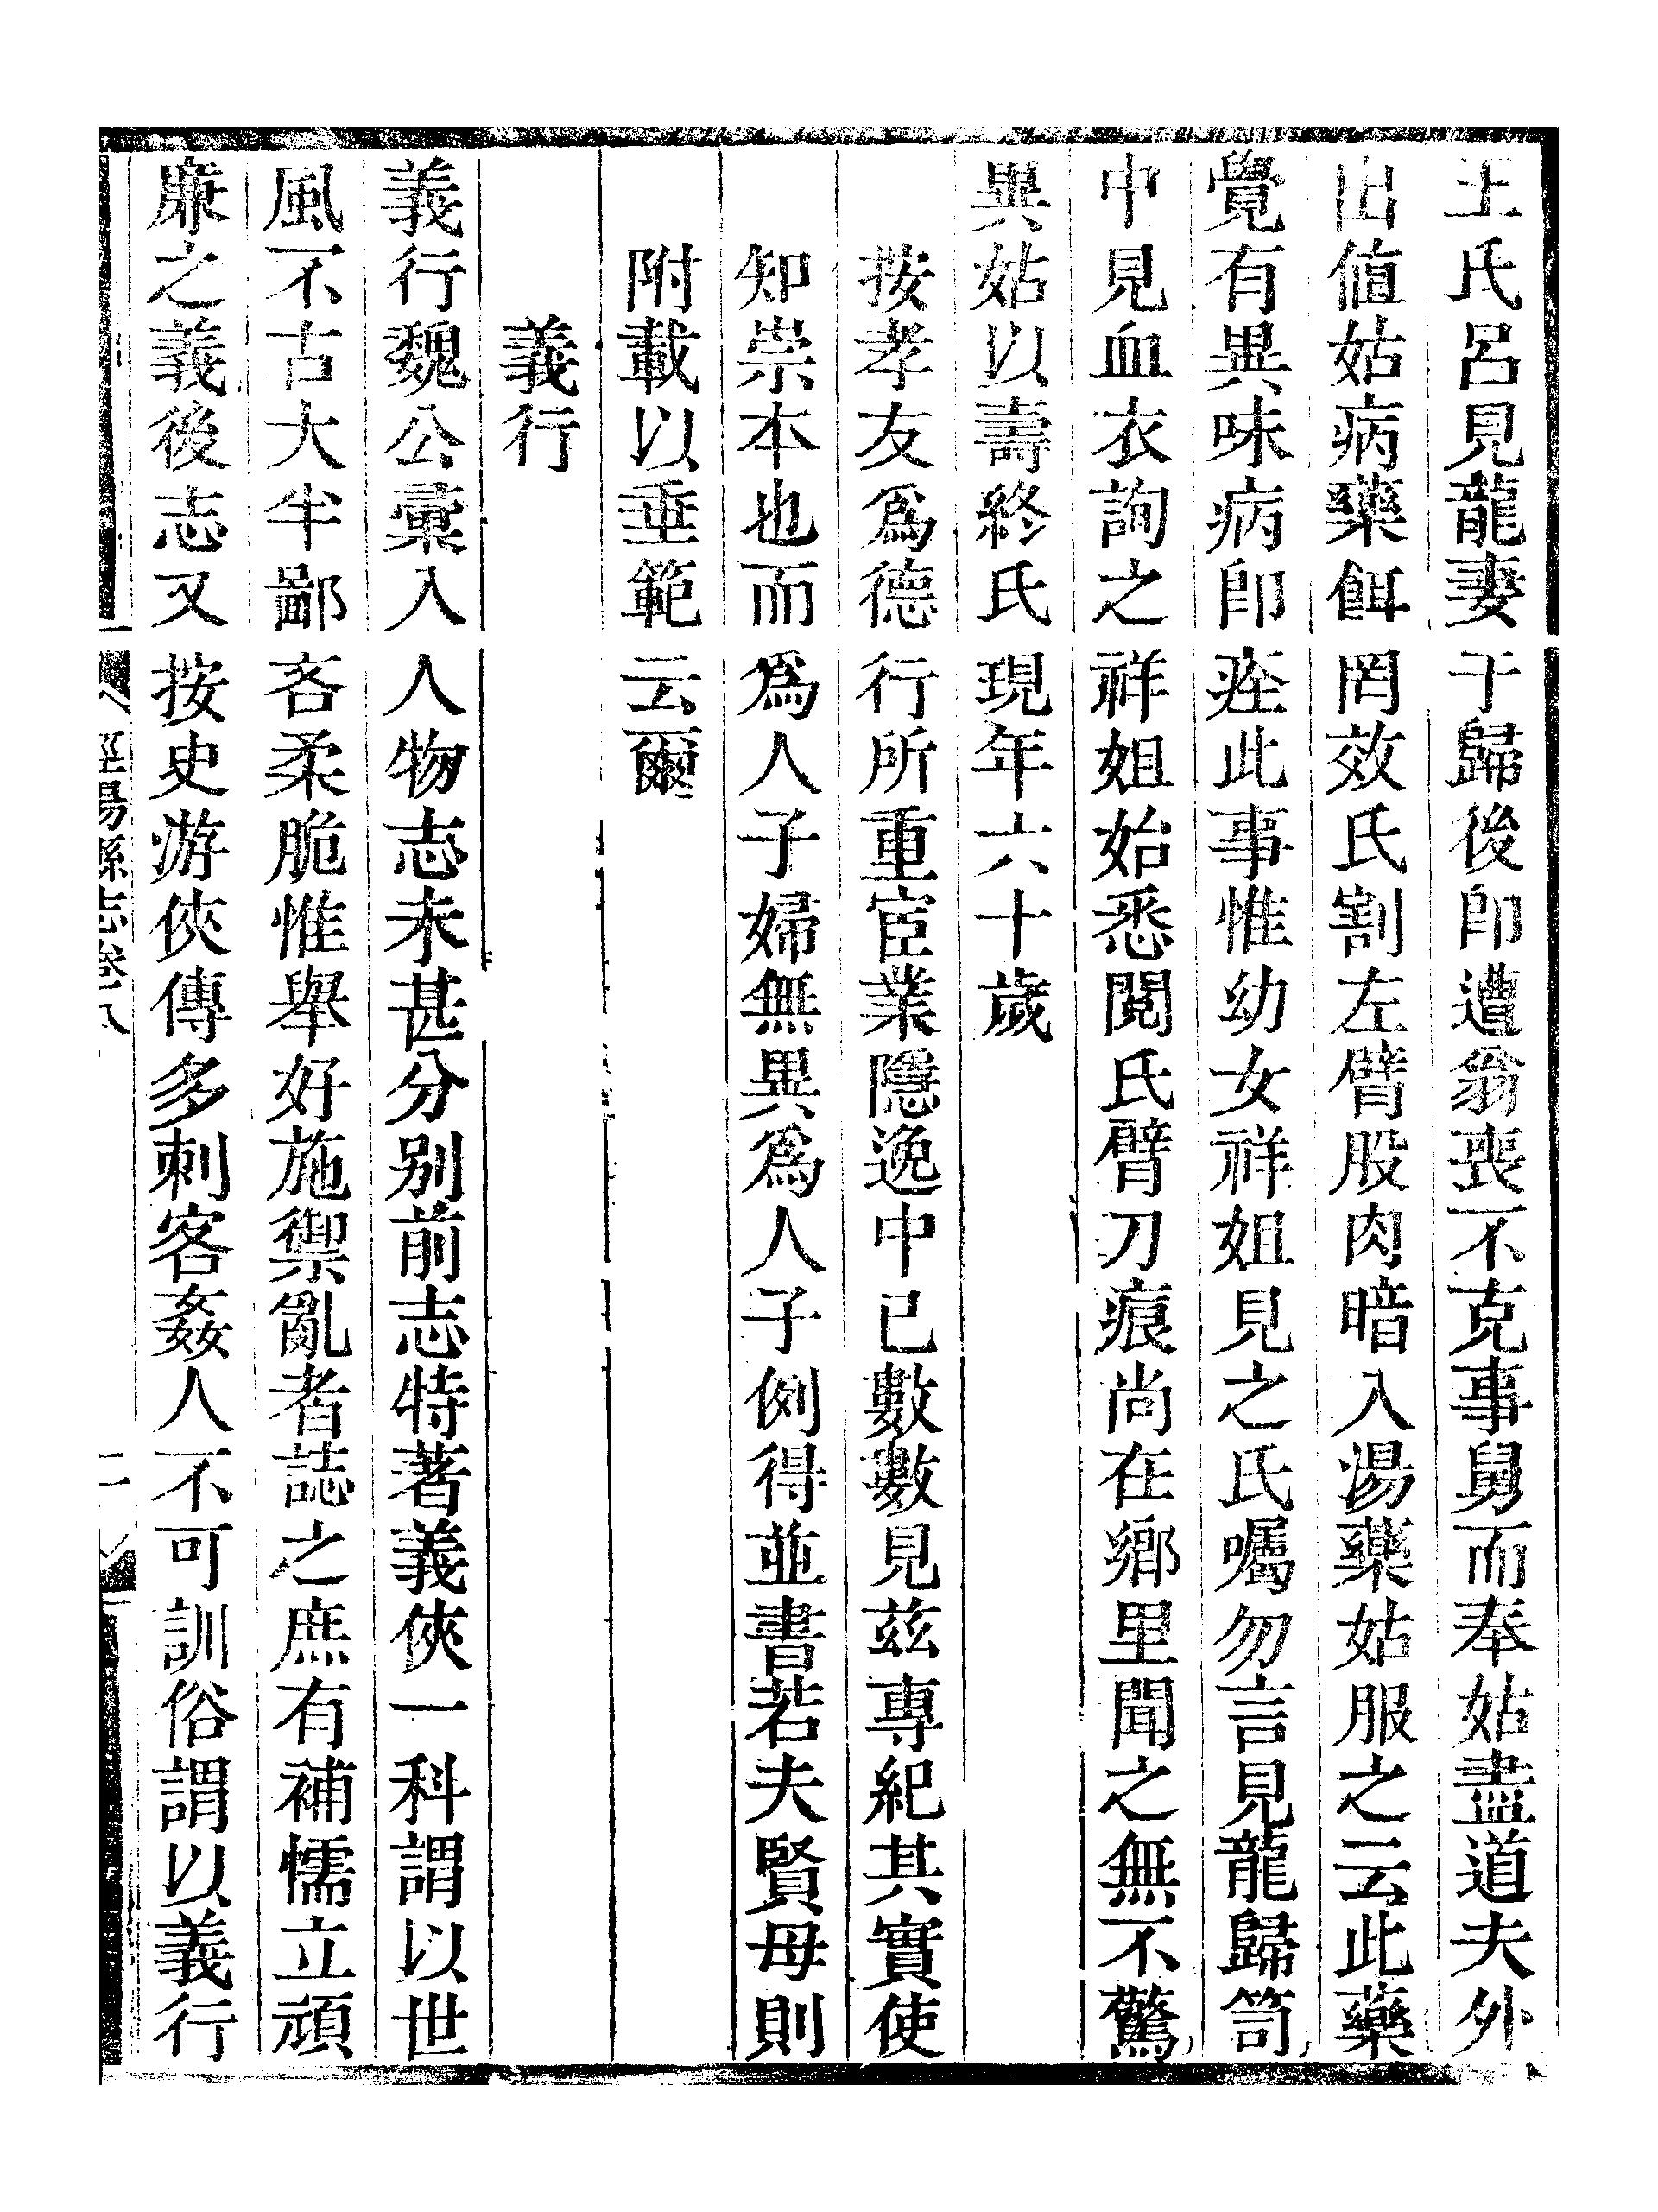 王氏呂見龍妻于歸後卽遭翁喪不克事舅而奉姑盡道夫外
出値姑病藥餌罔效氏割左臂股肉暗入湯藥姑服之云此藥
覺有異味病卽痊此事惟幼女祥姐見之氏囑勿言見龍歸笥
中見血衣詢之祥姐始悉閱氏臂刀痕尚在鄉里聞之無不驚
異姑以壽終氏現年六十歲
按孝友爲德行所重宦業隱逸中已數數見茲專紀其實使
知崇本也而爲人子婦無異爲人子例得並書若夫賢母則
附載以垂範云爾
義行
義行魏公彙入人物志未甚分别前志特著義俠一科謂以世
風不古大半鄙吝柔脆惟舉好施禦亂者誌之庶有補懦立頑
廉之義後志又按史游俠傳多刺客姦人不可訓俗謂以義行
涇陽縣志卷八